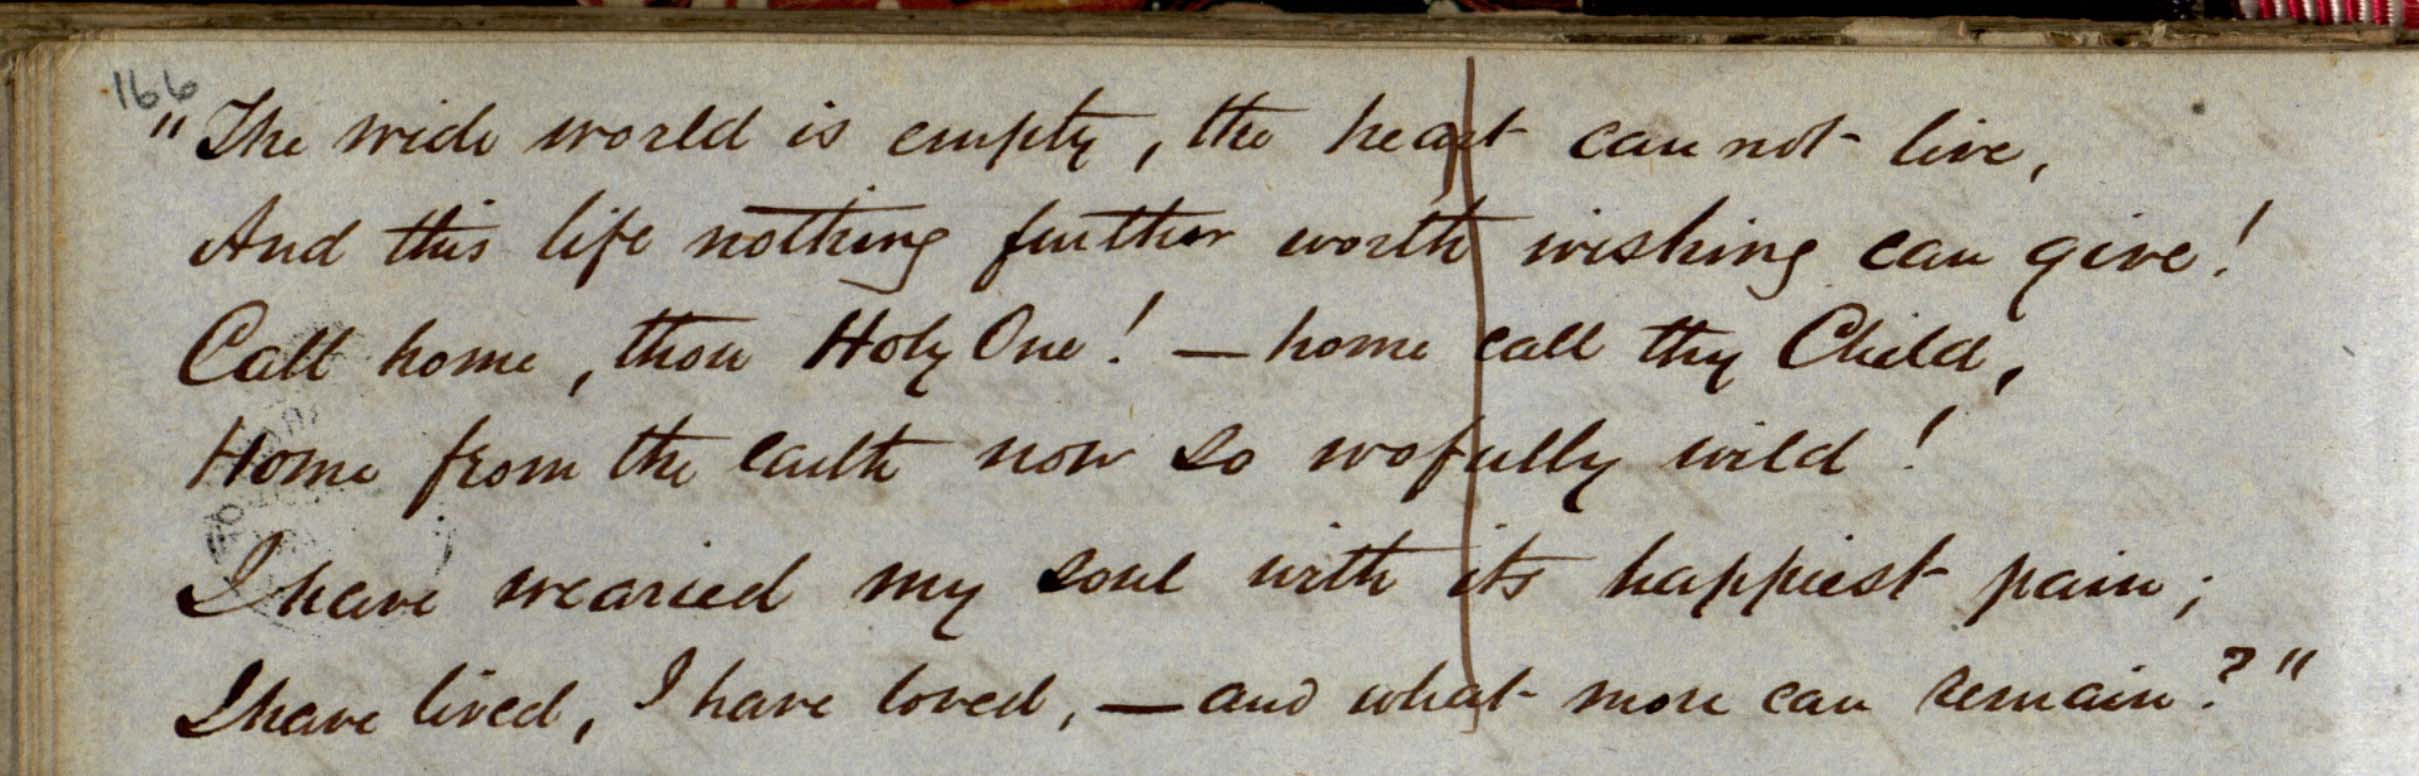 166
"The wide world is empty, the heart cannot live,
And this life nothing further worth wishing can give!
Call home, thou Holy One! — home call thy Child,
Home from the earth now so wofully wild!
I have wearied my soul with its happiest pain;
I have lived, I have loved, — and what more can remain?"